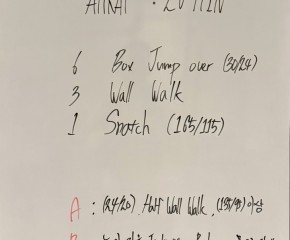 AMRAP : 20 MIN
6 Box Jump over (30/24)
3 Wall Walk
1 Snatch (165/115)
A : (24/20), Half Wall Walk, (135/95) 이상